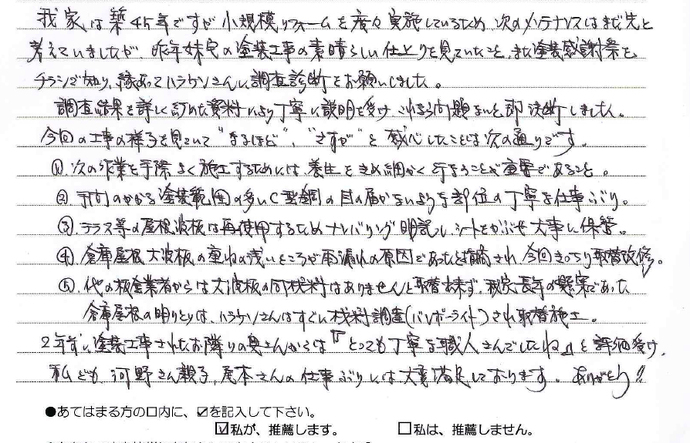 我家は築45年ですが小規模リフォームを度々実施しているため、次のメンテナンスはまだ先と
考えていましたが、昨年妹宅の塗装工事の素晴らしい仕上りを見ていたこと、また塗装感謝祭を
チラシで知り、縁あってハラケンさんに調査診断をお願いしました。
調査結果を詳しく記めた資料により丁寧に説明を受け、これなら問題ないと即決断しました。
今回の工事の様子を見ていて"なるほど"、"さすが"と感心したことは次の通りです。
①、次の作業を手際よく施工するためには、養生をきめ細かく行なうことが重要であること。
②、手間のかかる塗装範囲の多いC型鋼の目の届かないような部位の丁寧な仕事ぶり。
③、テラス等の屋根波板は再使用するためナンバリング明記し、シートをかぶせ大事に保管。
④、倉庫屋根大波板の重ねの浅いところが雨漏れの原因であったと指摘され、今回きっちり取替改修。
⑤、他の板金業者からは大波板の同材料はありませんと取替出来ず、我家長年の懸案であった
倉庫屋根の明りとりは、ハラケンさんはすぐに材料調査(ハイボーライト)され取替施工。
2年前に塗装工事されたお隣りの奥さんからは『とっても丁寧な職人さんでしたね』と評価受け、
私ども、河野さん親子、尾本さんの仕事ぶりには大変満足しております。ありがとう!!
●あてはまる方の口内に、☑を記入して下さい。
☑私が、推薦します。 □私は、推薦しません。